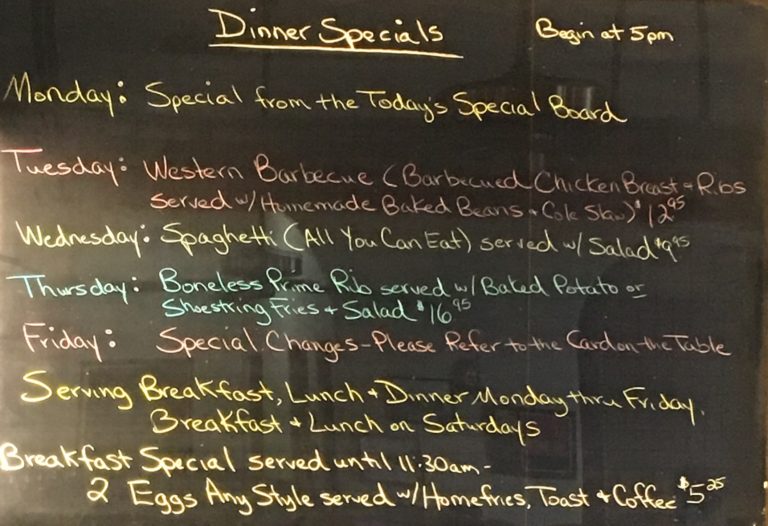 Dinner Specials Begin at 5pm
Monday: Special from the Today's Special Board
Tuesday: Western Barbecue (Barbecued Chicken Breast + Ribs
served w/ Homemade Baked Beans + Cole Slaw) $12.95
Wednesday: Spaghetti (All You Can Eat) served w/ Salad $9.95
Thursday: Boneless Prime Rib served w/ Baked Potato or
Shoestring Fries + Salad $16.95
Friday: Special Changes - Please Refer to the Card on the Table
Serving Breakfast, Lunch + Dinner Monday thru Friday.
Breakfast + Lunch on Saturdays
Breakfast Special served until 11:30am -
2 Eggs Any Style served w/ Homefries, Toast + Coffee $5.25